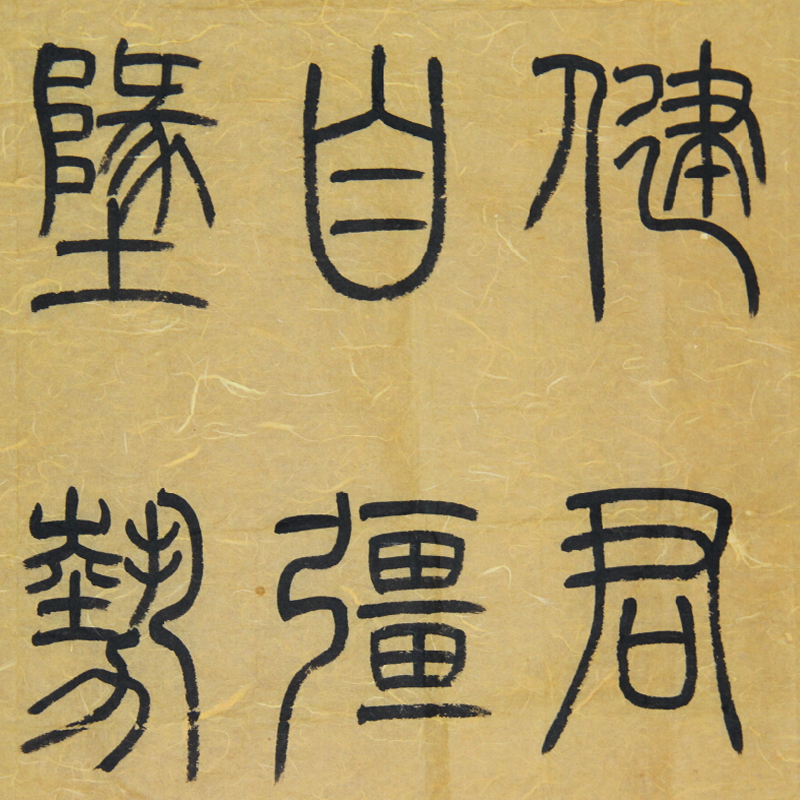 健君
自彊
墬勢